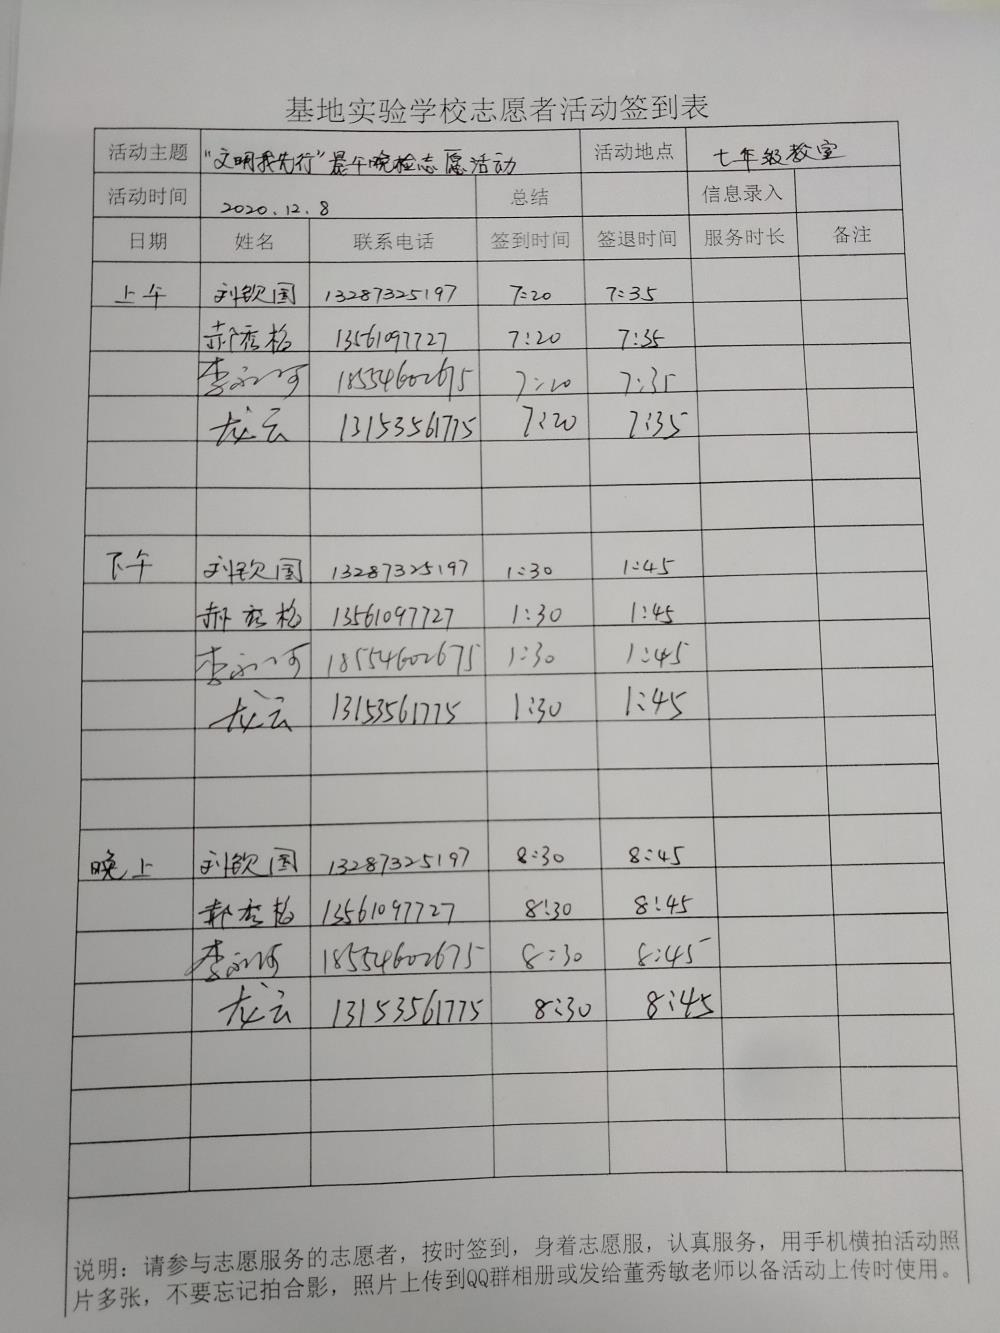 基地实验学校志愿者活动签到表
活动主题 "文明我先行"晨午晚检志愿活动 活动地点 七年级教室
活动时间 2020.12.8 总结 信息录入
日期 姓名 联系电话 签到时间 签退时间 服务时长 备注
上午 刘钦国 13287325197 7:20 7:35
郝秀格 13561097727 7:20 7:35
李 18554602675 7:20 7:35
龙云 13153561775 7:20 7:35
下午 刘钦国 13287325197 1:30 1:45
郝秀格 13561097727 1:30 1:45
李 18554602675 1:30 1:45
龙云 13153561775 1:30 1:45
晚上 刘钦国 13287325197 8:30 8:45
郝秀格 13561097727 8:30 8:45
李 18554602675 8:30 8:45
龙云 13153561775 8:30 8:45
说明：请参与志愿服务的志愿者，按时签到，身着志愿服，认真服务，用手机横拍活动照
片多张，不要忘记拍合影，照片上传到QQ群相册或发给董秀敏老师以备活动上传时使用。